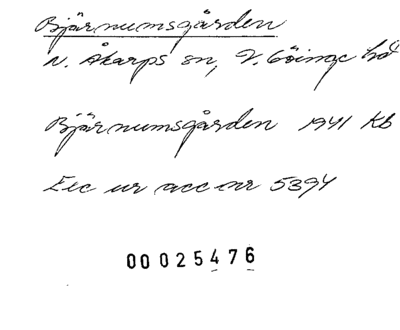 Bjärnumsgården
N. Åkarps sn, V. Göinge hd
Bjärnumsgården 1941 Kb
Exc ur acc nr 5394
00025476